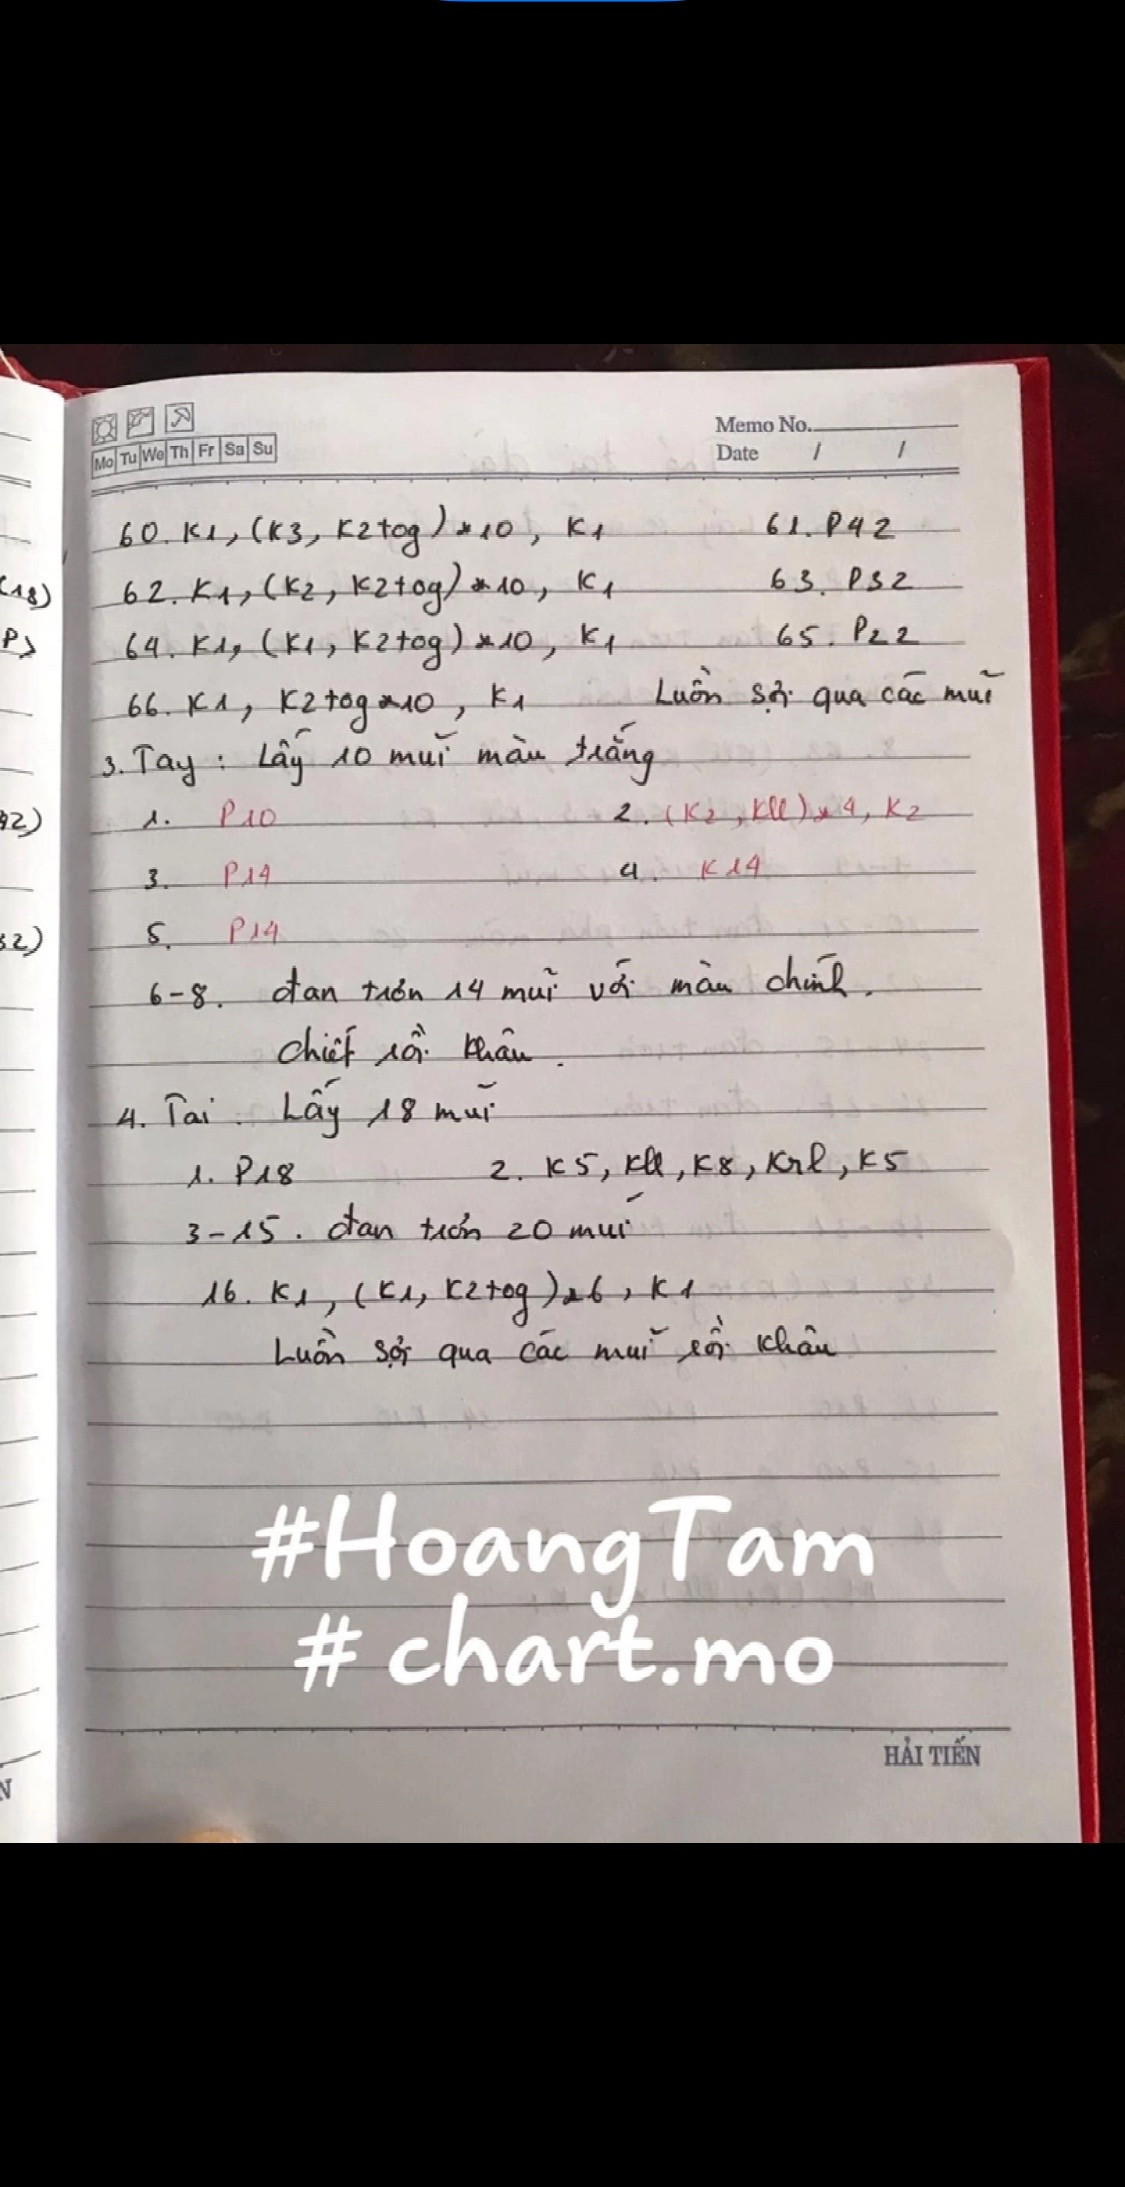 Memo No.
Mo Tu We Th Fr Sa Su
Date / /
60. K1, (K3, K2tog) * 10, K1 61. P42
62. K1, (K2, K2tog) * 10, K1 63. P32
64. K1, (K1, K2tog) * 10, K1 65. P22
66. K1, K2tog * 10, K1 Luồn sợi qua các mũi
3. Tay : Lấy 10 mũi màu trắng
1. P10 2. (K2, Kll) * 4, K2
3. P14 4. K14
5. P14
6-8. đan trơn 14 mũi với màu chính.
chiết rồi khâu.
4. Tai : Lấy 18 mũi
1. P18 2. K5, Kll, K8, Krl, K5
3-15. đan trơn 20 mũi
16. K1, (K1, K2tog) * 6, K1
Luồn sợi qua các mũi rồi khâu
#HoangTam
# chart.mo
HẢI TIẾN
18)
P3
92)
32)
N